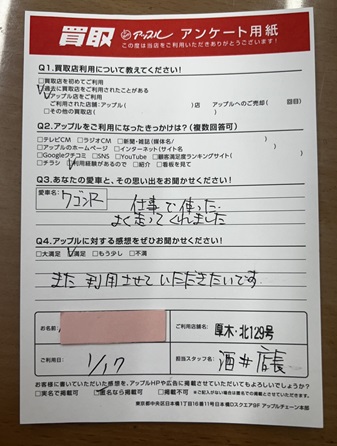 買取 アップル アンケート用紙
この度は当店をご利用いただきありがとうございます!
Q1.買取店利用について教えてください!
□買取店を初めてご利用
□過去に買取店をご利用されたことがある
□アップル店をご利用
ご利用された店舗:アップル( )店 アップルへのご売却( 回目)
□その他の買取店( )
Q2.アップルをご利用になったきっかけは?(複数回答可)
□テレビCM □ラジオCM □新聞・雑誌(媒体名/ )
□アップルのホームページ □インターネット(サイト名 )
□Googleクチコミ □SNS □YouTube □顧客満足度ランキングサイト( )
□チラシ □利用経験があるので □紹介 □看板を見て
Q3.あなたの愛車と、その思い出をお聞かせください!
愛車名:
ワゴンR
仕事で使った。
よく走ってくれました
Q4.アップルに対する感想をぜひお聞かせください!
□大満足 □満足 □もう少し □不満
また利用させていただきたいです
お名前
ご利用店舗名: 厚木・北129号
ご利用日: 1/17
担当スタッフ名: 酒井店長
お客様に書いていただいた感想を、アップルHPや広告に掲載させていただいてもよろしいでしょうか?
□実名で掲載可 □匿名なら掲載可 □掲載不可 ※ご記入がない場合は匿名での掲載とさせていただきます。
東京都中央区日本橋1丁目16番11号日本橋Dスクエア9F アップルチェーン本部